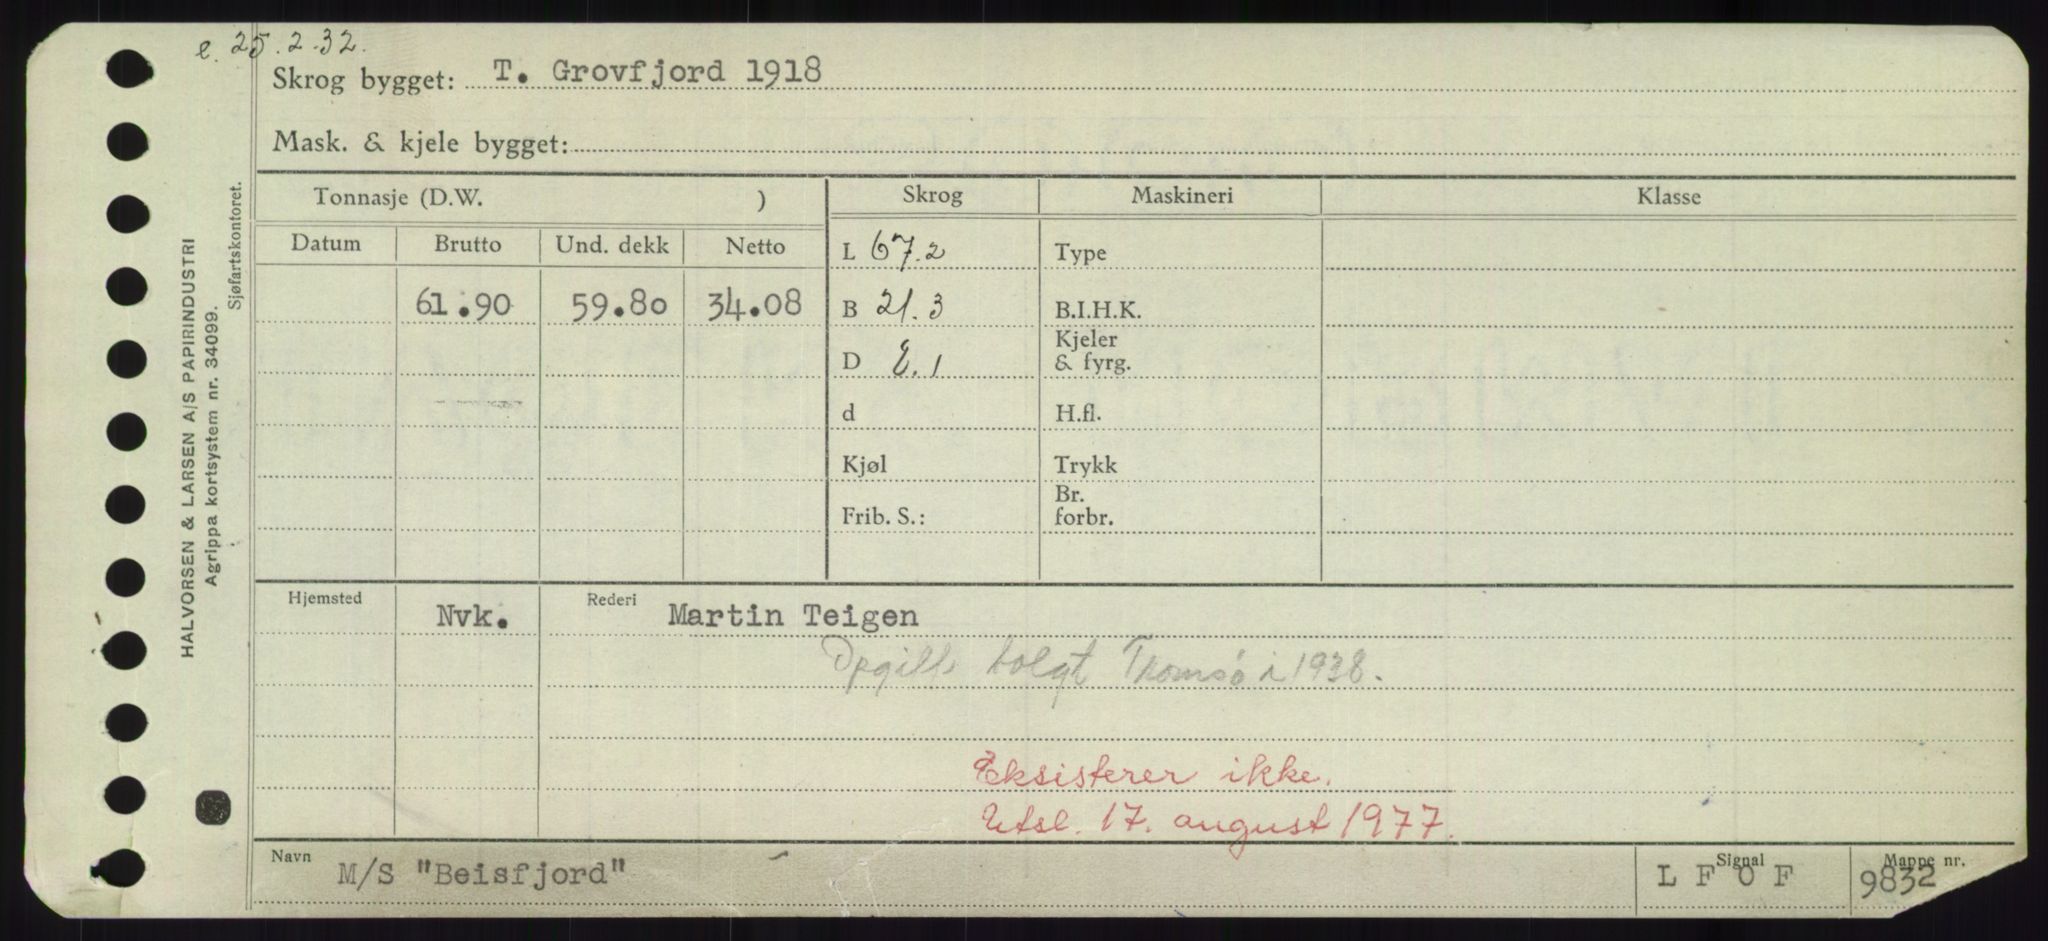 e. 25.2.32.
Skrog bygget: T. Grovfjord 1918
Mask. & kjele bygget:
Tonnasje (D.W. ) Skrog Maskineri Klasse
Datum Brutto Und. dekk Netto L 67.2 Type
61.90 59.80 34.08 B 21.3 B.I.H.K.
D 8.1 Kjeler & fyrg.
d H.fl.
Kjøl Trykk
Frib. S.: Br. forbr.
Hjemsted Nvk. Rederi Martin Teigen
solgt Tromsø i 1938.
Eksisterer ikke.
Utsl. 17. august 1977.
Navn M/S "Beisfjord" Signal L F O F Mappe nr. 9832
HALVORSEN & LARSEN A/S PAPIRINDUSTRI
Agrippa kortsystem nr. 34099.
Sjøfartskontoret.